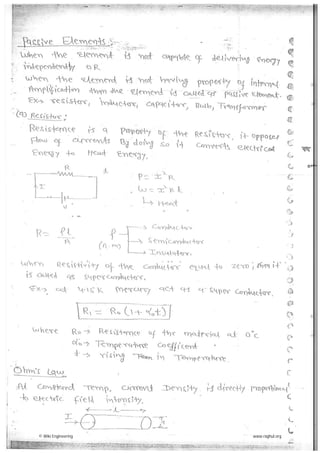 Passive Elements :-
When the element is not capable of delivering energy
independently OR
when the element is not having property of internal
Amplification then the element is called as passive Element.
Ex:- resistor, inductor, capacitor, Bulb, Transformer
(a) Resistor :
Resistance is a property of the Resistor, it opposes
flow of currents By doing so it converts electrical
Energy to Heat Energy.
R
I
V
P = I²R
W = I²Rt
↳ Heat
R = ρl/A
ρ
(Ω.m)
→ Conductor
→ Semiconductor
→ Insulator
when Resistivity of the conductor equal to zero, then it
is called as Superconductor.
Ex:- at 4.15K mercury act as a super conductor.
R₁ = R₀(1+α₀t)
where R₀ → Resistance of the material at 0°C
α₀ → Temperature Coefficient
t → rising in Temperature.
Ohm's Law
At Constant Temp, current Density is directly proportional
to electric field intensity.
l
I
I
© Wiki Engineering
www.raghul.org